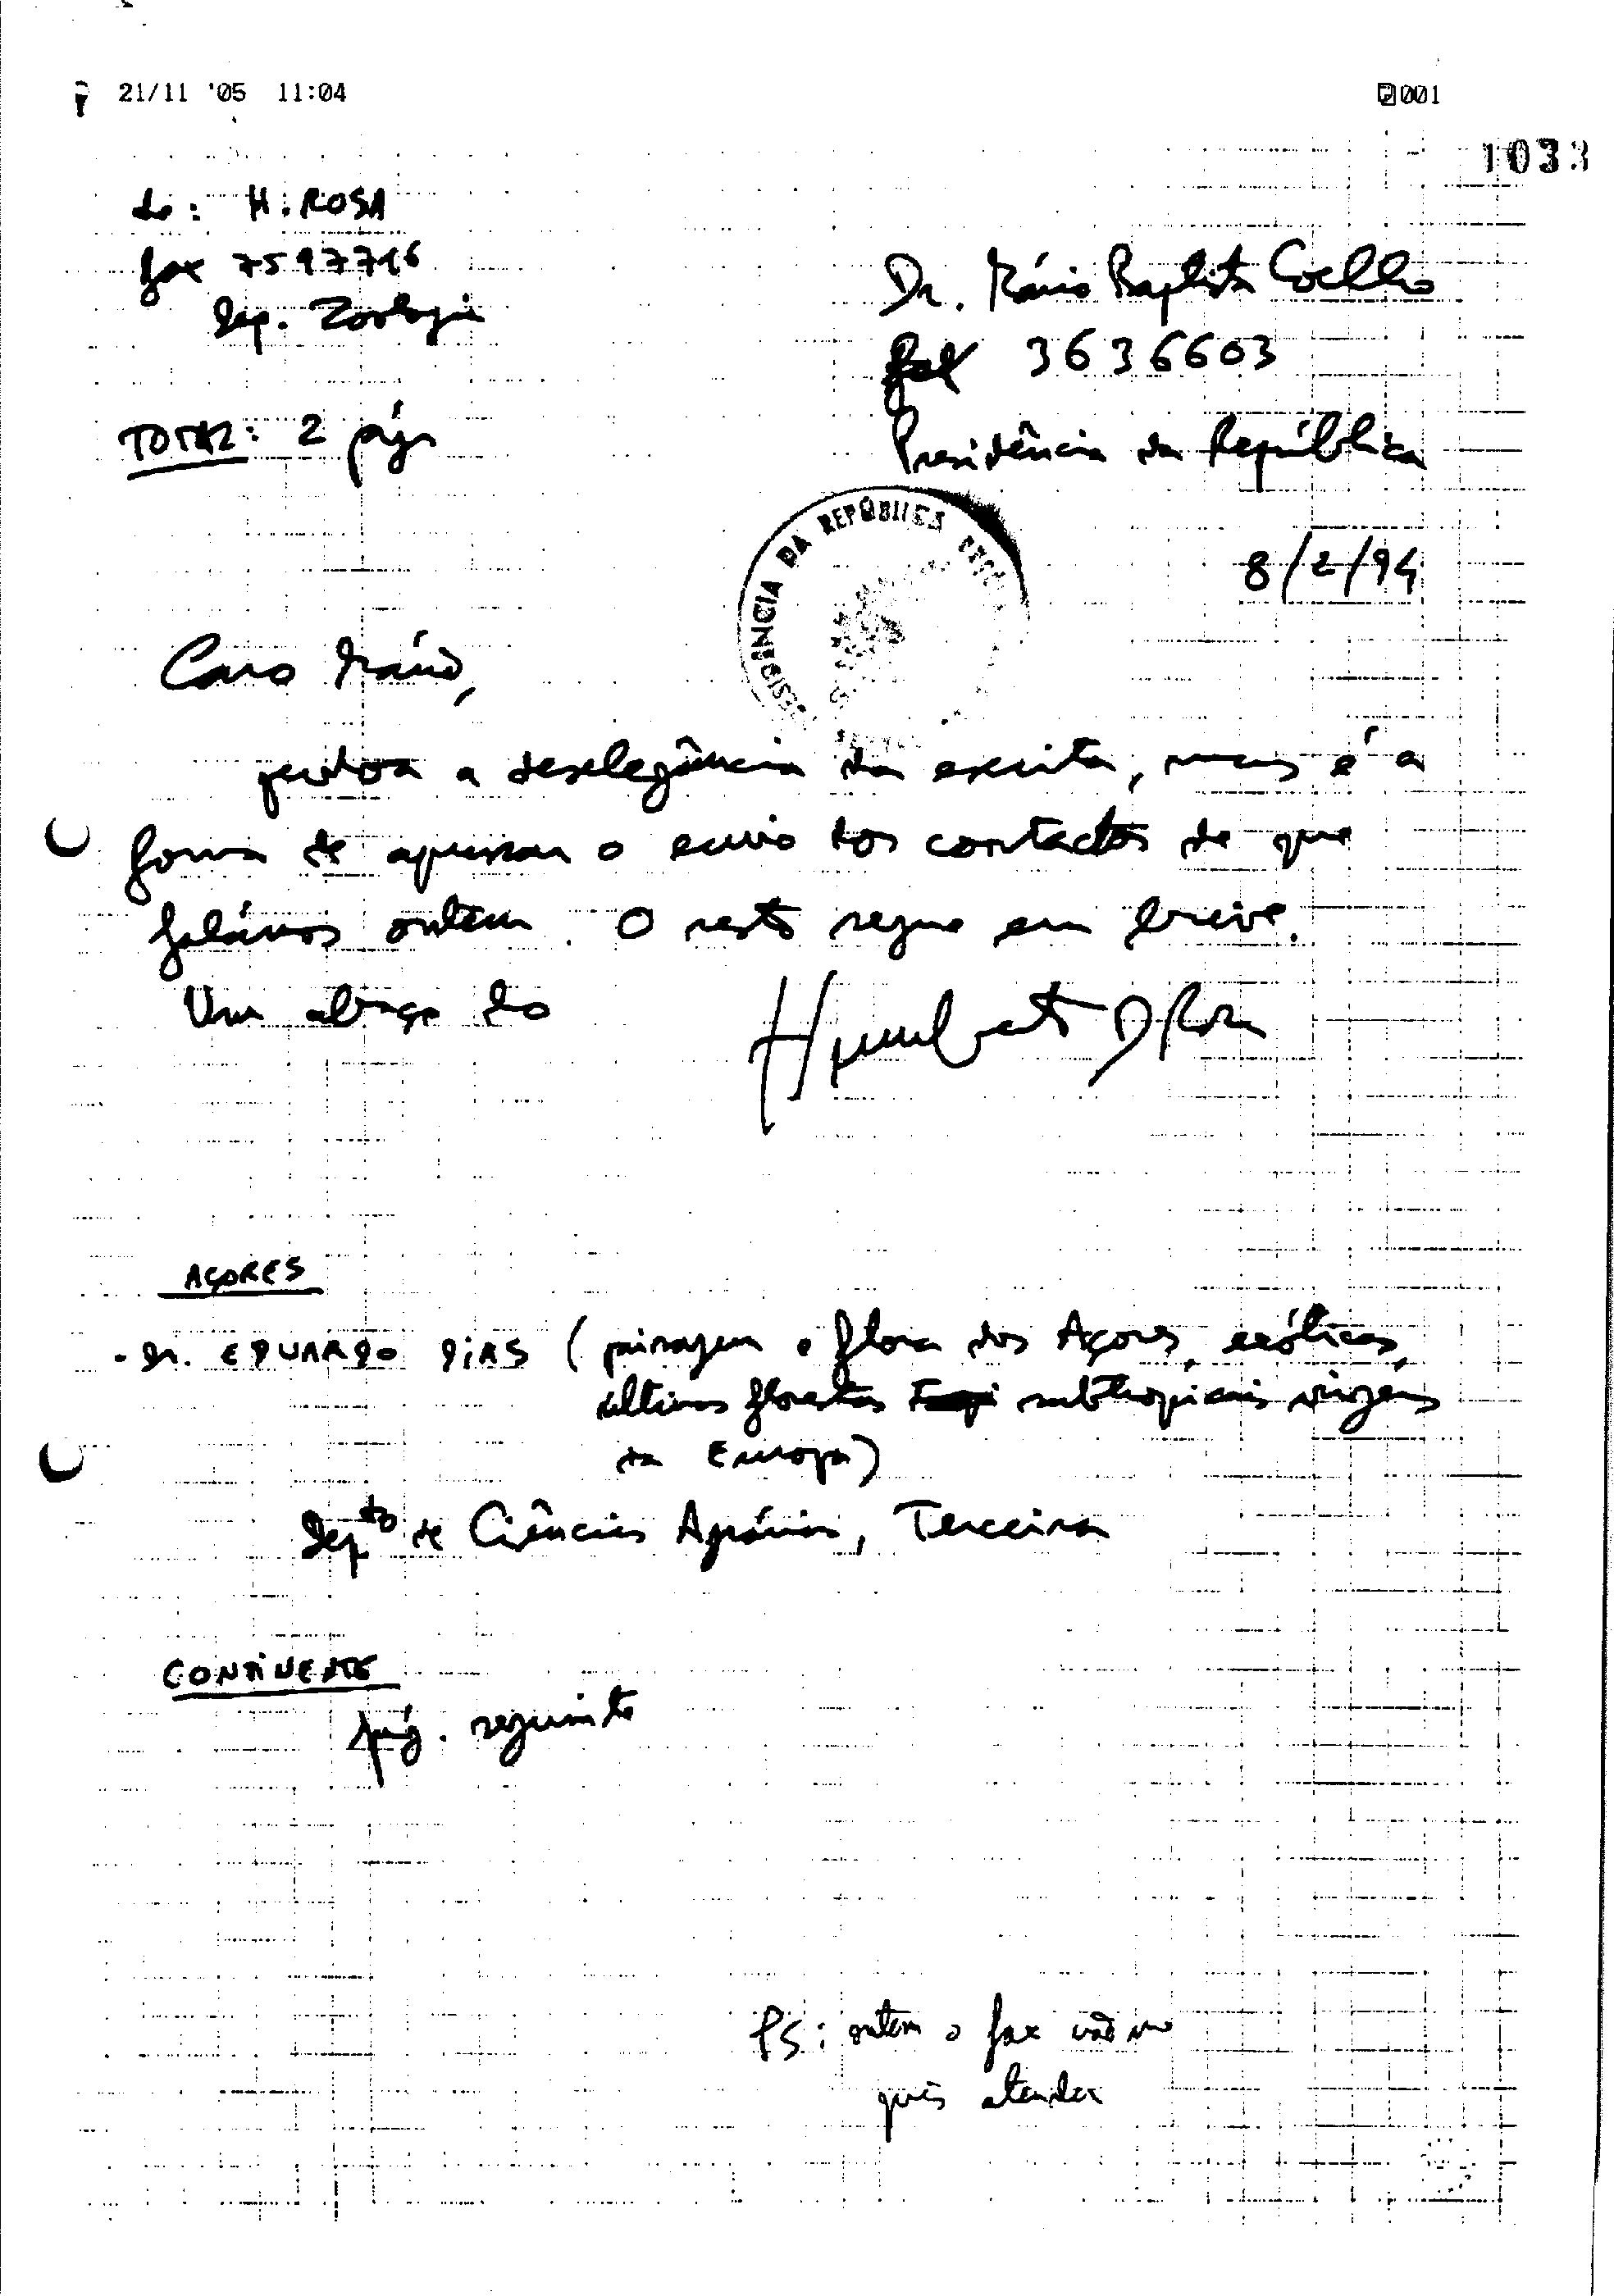 21/11 '05 11:04
001
1033
de: H. ROSA
fax 7597716
Dep. Zoologia
TOTAL: 2 pág
Dr. Mário Baptista Coelho
fax 3636603
Presidência da República
PRESIDÊNCIA DA REPÚBLICA
8/2/94
Caro Mário,
perdoa a deselegância da escrita, mas é a
forma de apressar o envio dos contactos de que
falámos ontem. O resto segue em breve.
Um abraço do
Humberto D Rosa
AÇORES
- Dr. EDUARDO DIAS (paisagem e flora dos Açores, exóticas,
últimas florestas subtropicais virgens
da Europa)
Depto de Ciências Agrárias, Terceira
CONTINENTE
pág. seguinte
PS: ontem o fax não me
quis atender